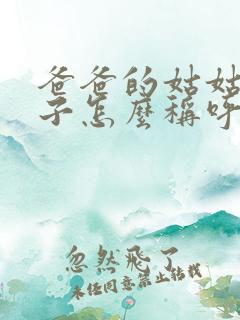 爸爸的姑姑
子怎麼稱呼
忽然飛了
未经同意禁止转载